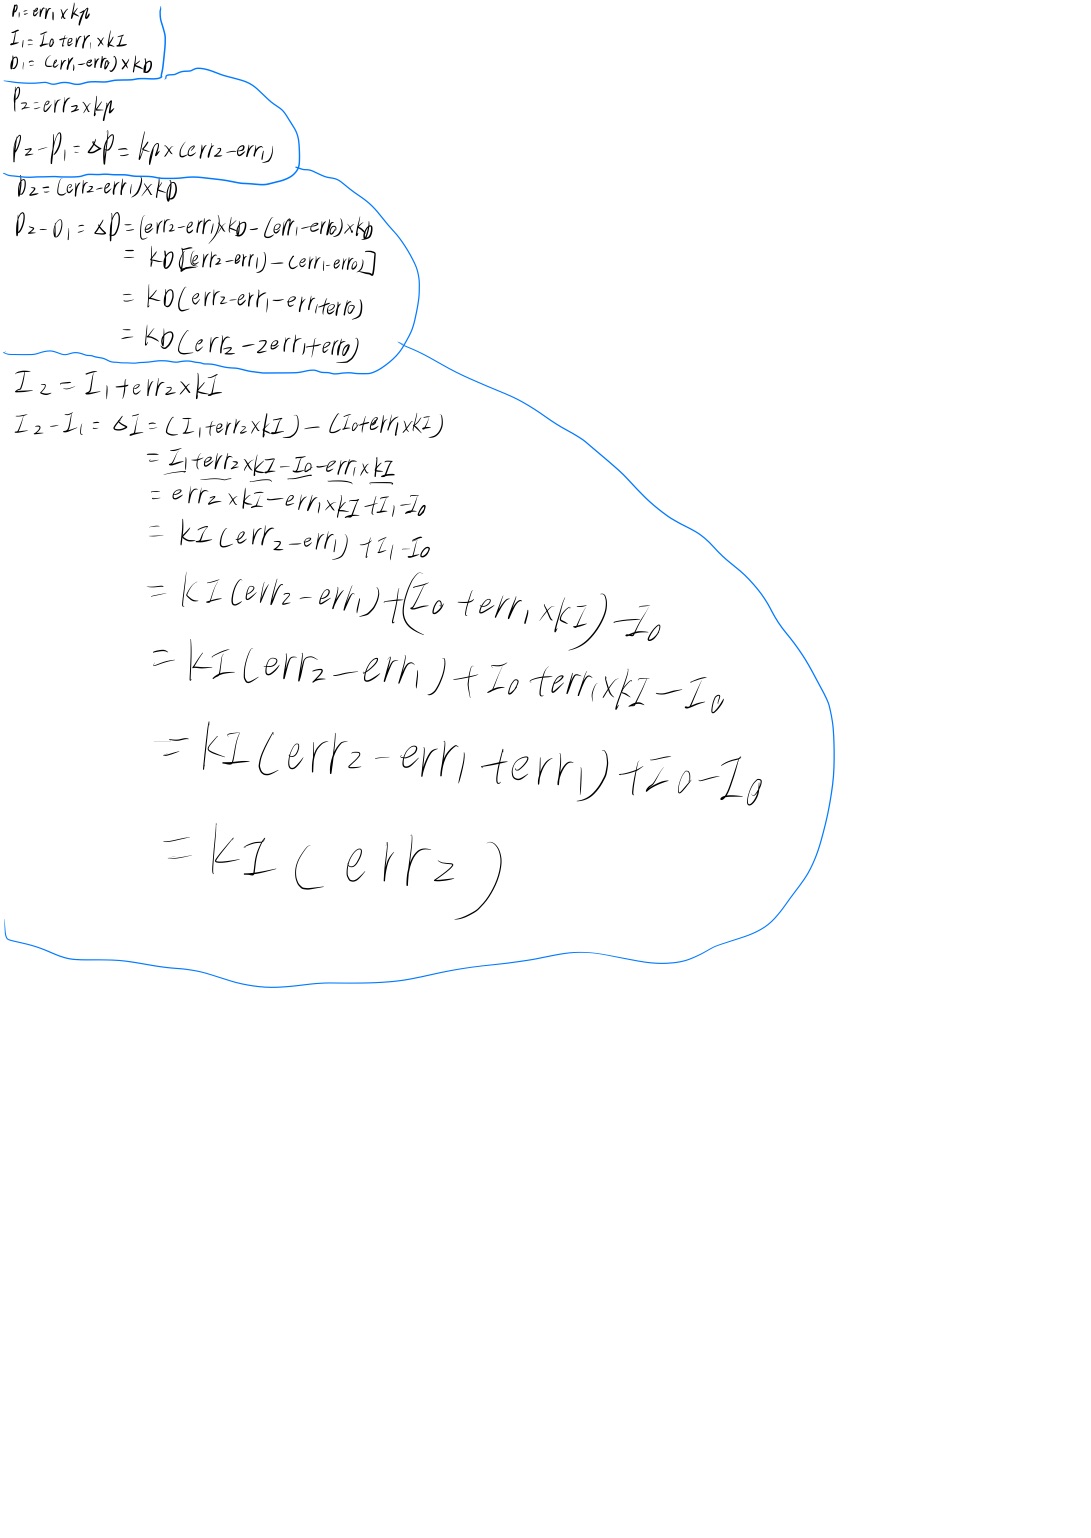 P₁=err₁×kp
I₁=I₀+err₁×kI
D₁=(err₁-err₀)×kD
P₂=err₂×kp
P₂-P₁=ΔP=kp×(err₂-err₁)
D₂=(err₂-err₁)×kD
D₂-D₁=ΔD=(err₂-err₁)×kD-(err₁-err₀)×kD
=kD[(err₂-err₁)-(err₁-err₀)]
=kD(err₂-err₁-err₁+err₀)
=kD(err₂-2err₁+err₀)
I₂=I₁+err₂×kI
I₂-I₁=ΔI=(I₁+err₂×kI)-(I₀+err₁×kI)
=I₁+err₂×kI-I₀-err₁×kI
=err₂×kI-err₁×kI+I₁-I₀
=kI(err₂-err₁)+I₁-I₀
=kI(err₂-err₁)+(I₀+err₁×kI)-I₀
=kI(err₂-err₁)+I₀+err₁×kI-I₀
=kI(err₂-err₁+err₁)+I₀-I₀
=kI(err₂)